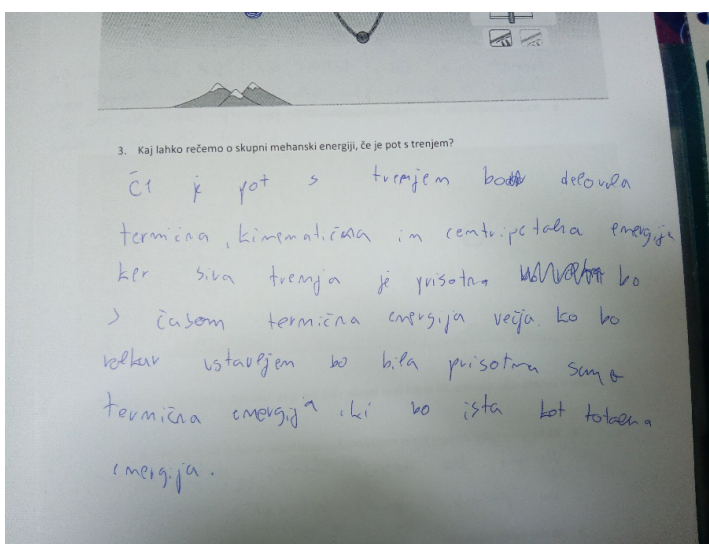 3. Kaj lahko rečemo o skupni mehanski energiji, če je pot s trenjem?
Če je pot s trenjem bo delovala
termična, kinematična in centripetalna energija
ker sila trenja je prisotna bo
s časom termična energija večja. ko bo
ustavljen bo bila prisotna samo
termična energija, ki bo ista kot totalna
energija.